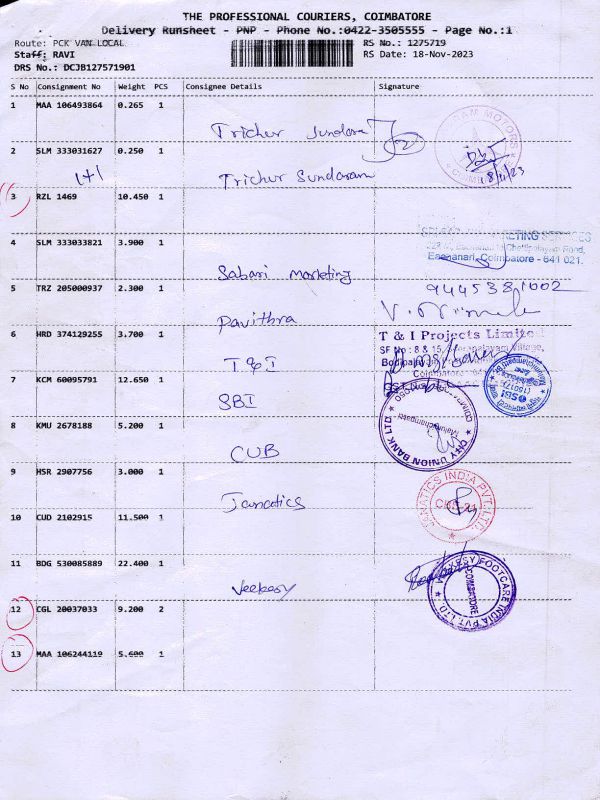 THE PROFESSIONAL COURIERS, COIMBATORE
Delivery Runsheet - PNP - Phone No.:0422-3505555 - Page No.:1
Route: PCK VAN LOCAL
RS No.: 1275719
Staff: RAVI
RS Date: 18-Nov-2023
DRS No.: DCJB127571901
S No Consignment No Weight PCS Consignee Details Signature
1 MAA 106493864 0.265 1
Trichur Sundara
2 SLM 333031627 0.250 1
Trichur Sundaram
1+1
3 RZL 1469 10.450 1
4 SLM 333033821 3.900 1
Eachanari, Coimbatore - 641 021.
Sabari Marketing
5 TRZ 205000937 2.300 1
Pavithra
6 HRD 374129255 3.700 1
T & I Projects Limited
SF No : 8 & 15,
T & I
7 KCM 60095791 12.650 1
SBI
SBI
CITY UNION BANK LTD
8 KMU 2678188 5.200 1
CUB
9 HSR 2907756 3.000 1
Janatics
JANATICS INDIA PVT. LTD.
10 CUD 2102915 11.500 1
11 BDG 530085889 22.400 1
Veekesy
VEEKESY FOOTCARE INDIA PVT. LTD.
COIMBATORE
12 CGL 20037033 9.200 2
13 MAA 106244119 5.600 1